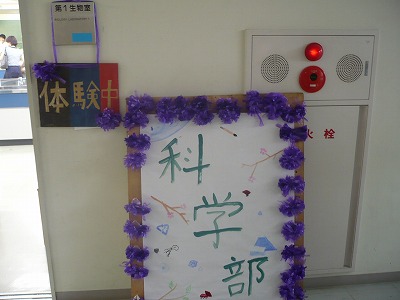 第1生物室
体験中
科学部
火栓